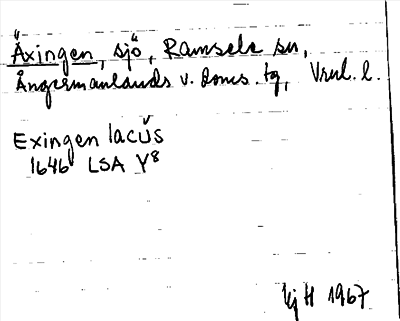 Äxingen, sjö, Ramsele sn,
Ångermanlands v. doms. tg, Vnl. l.
Exingen lacŭs
1646 LSA Y8
HjH 1967